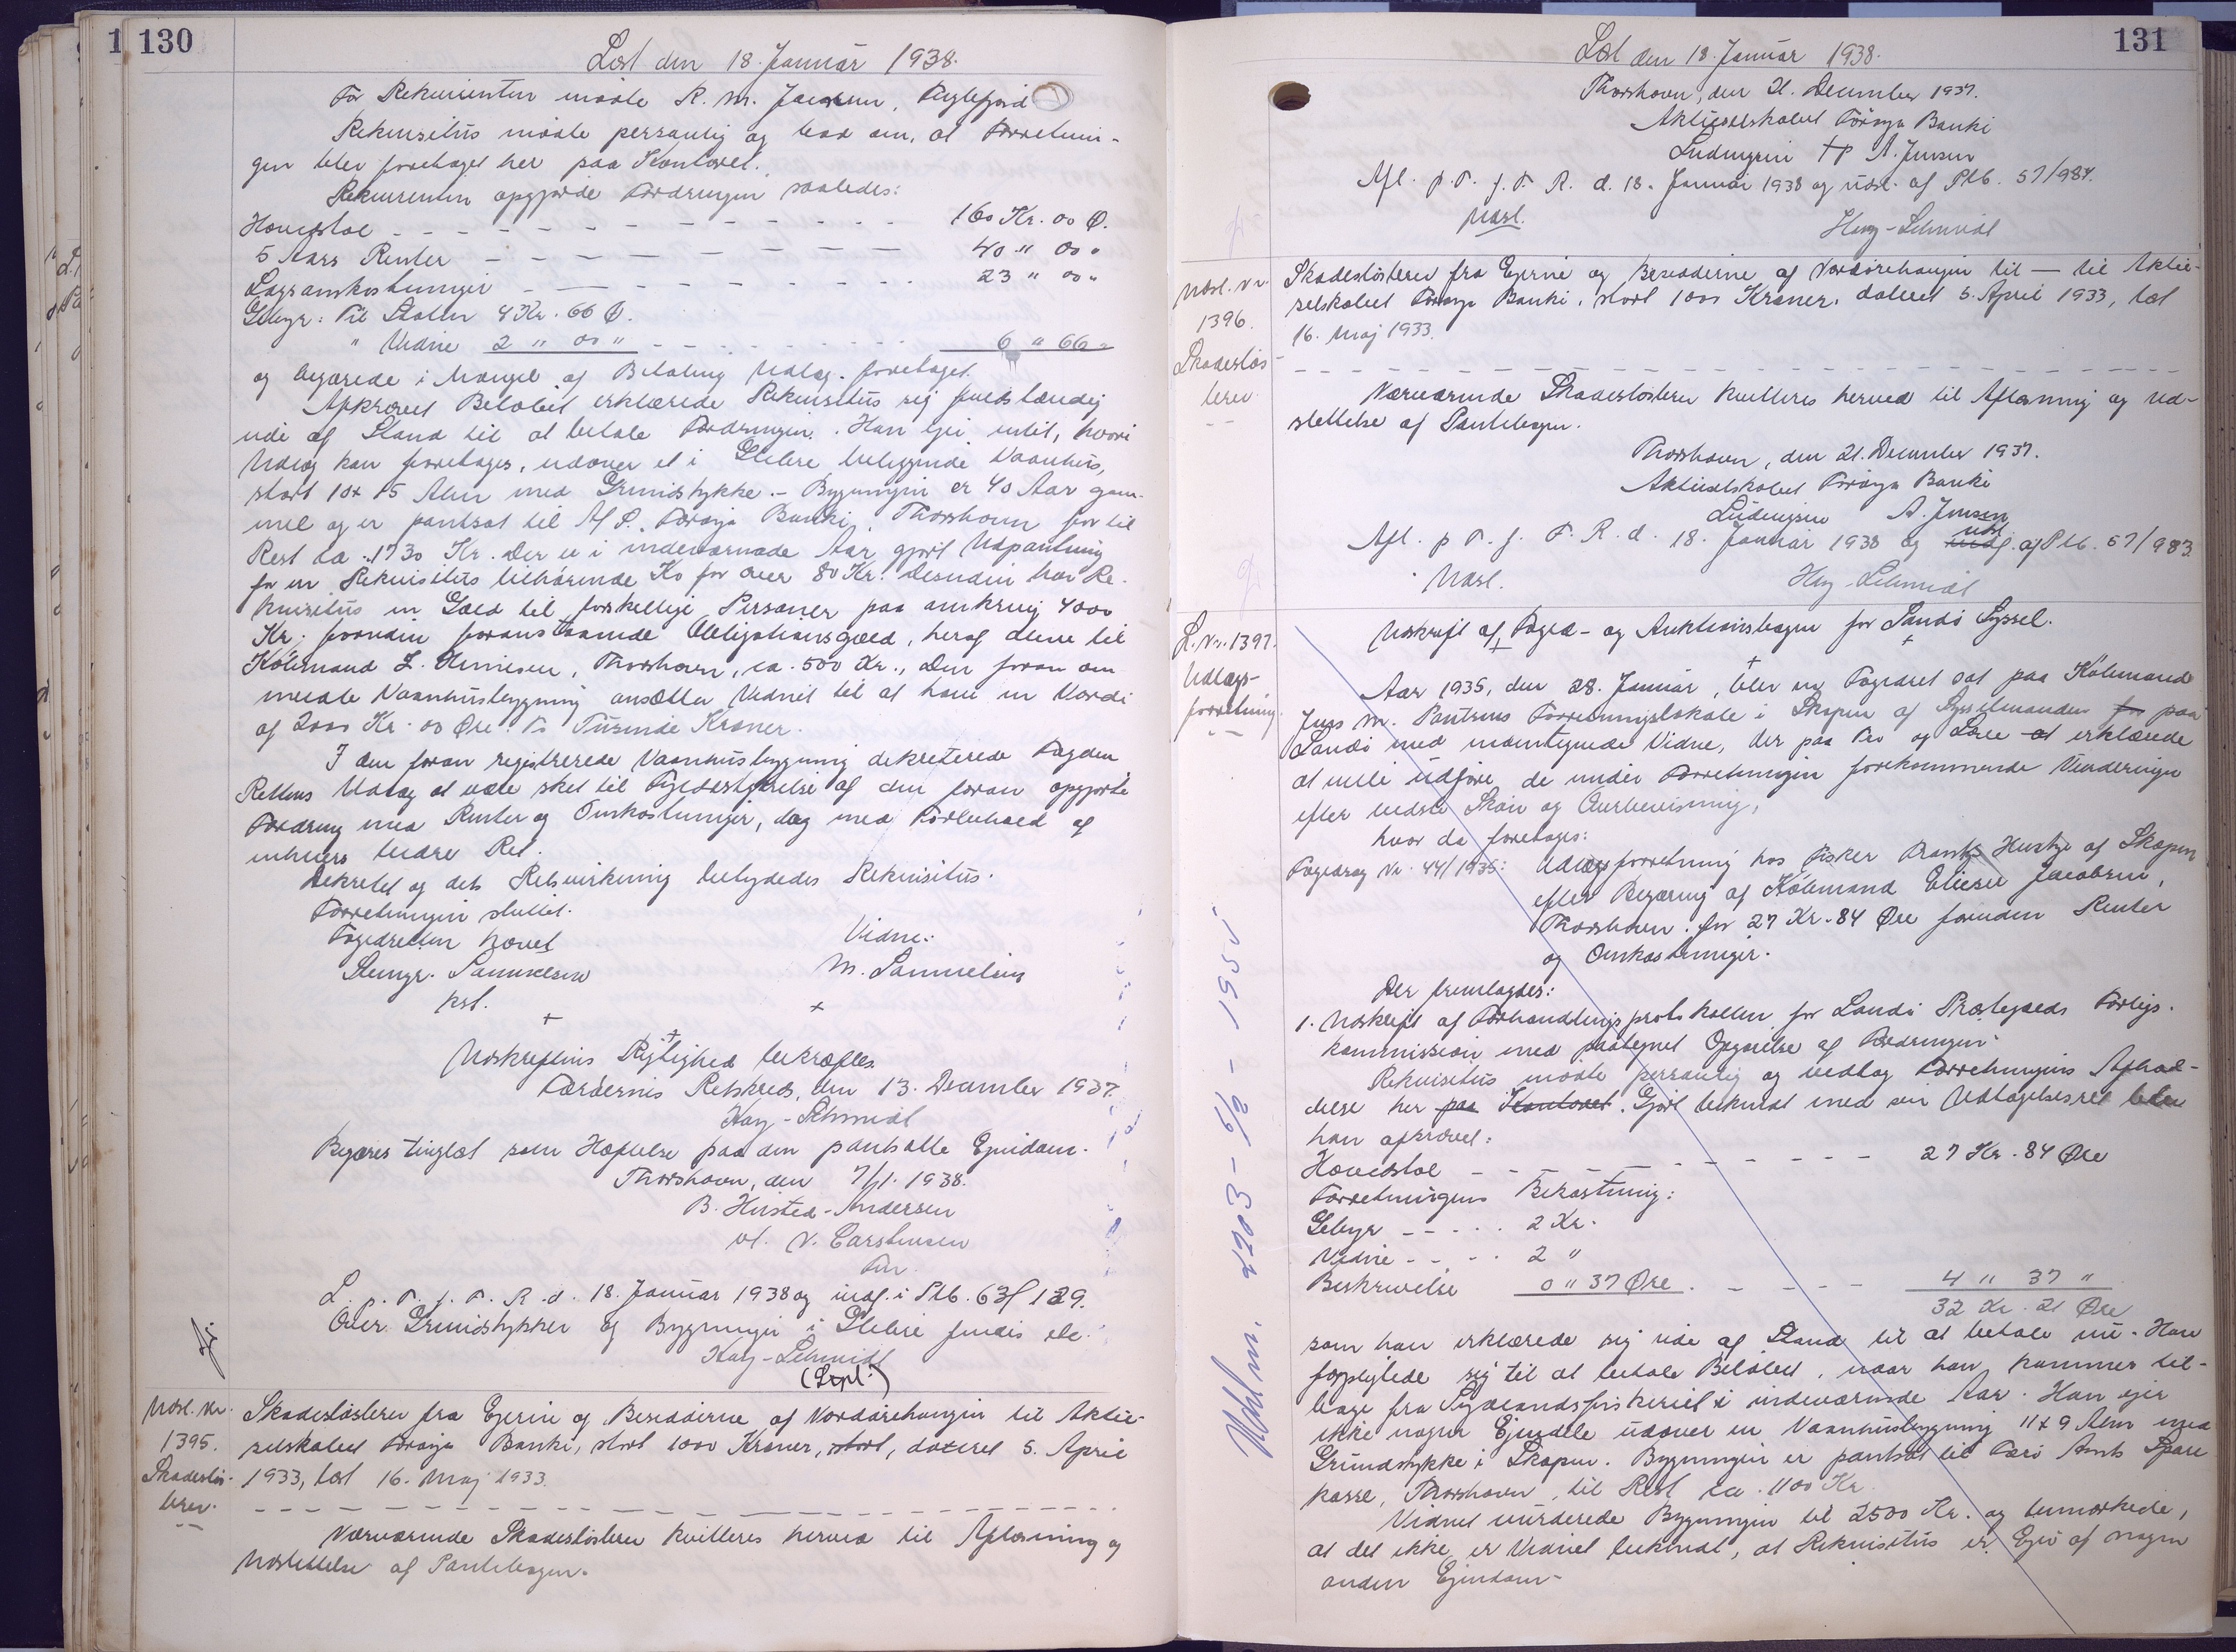 130
Læst den 18. Januar 1938.
For Rekvirenten mødte R. M. Jacobsen, Fuglefjord
Rekvisitus mødte personlig og bad om, at Forretnin-
gen blev foretaget her paa Kontoret.
Rekvirenten opgjorde Fordringen saaledes:
Hovedstol - - - 160 Kr. 00 Ø.
5 Aars Renter - - - 40 " 00 "
Sagsomkostninger - - - 23 " 00 "
Gebyr: Til Staten 4 Kr. 66 Ø.
" Vidne 2 " 00 " - - - 6 " 66 "
og begærede i Mangel af Betaling Udlæg foretaget.
Afkrævet Beløbet erklærede Rekvisitus sig fuldstændig
ude af Stand til at betale Fordringen. Han ejer intet, hvori
Udlæg kan foretages, udover et i Glibre beliggende Vaanhus,
stort 10 x 15 Alen med Grundstykke. - Bygningen er 40 Aar gam-
mel og er pantsat til A/S. Førøya Banki, Thorshavn for til
Rest ca. 1730 Kr. Der er i indeværende Aar gjort Udpantning
for en Rekvisitus tilhørende Ko for over 80 Kr. Desuden har Re-
kvisitus en Gæld til forskellige Personer paa omkring 4000
Kr. foruden foranstaaende Obligationsgæld, heraf dene til
Købmand Z. Heinesen, Thorshavn, ca. 500 Kr., Den foran om
meldte Vaanhusbygning ansætter Vidnet til at have en Værdi
af 2000 Kr. 00 Øre. To Tusinde Kroner.
I den foran registrerede Vaanhusbygning dekreterede Fogden
Rettens Udlæg at være sket til Fyldestgørelse af den foran opgjorte
Fordring med Renter og Omkostninger, dog med Forbehold af
enhvers bedre Ret.
Dekretet og dets Retsvirkning betydedes Rekvisitus.
Forretningen sluttet.
Fogedretten hævet Vidne:
Steingr. Samuelsen M. Samuelsen
kst.
Udskriftens Rigtighed bekræftes.
Færøernes Retskreds, den 13. December 1937.
Høy-Schmidt
Begæres tinglæst som Hæftelse paa den pantsatte Ejendom.
Thorshavn, den 7/1. 1938.
B. Husted-Andersen
v. V. Carstensen
Fm.
L. p. T. f. F. R. d. 18. Januar 1938 og indf. i Ptb. 63/129.
Over Grundstykker og Bygninger i Glibre findes etc.
Høy-Schmidt
(Expl.)
Udsl. Nr.
1395.
Skadesløs-
brev.
Skadesløsbrev fra Ejerne og Besidderne af Nordørehaugen til Aktie-
selskabet Førøya Banki, stort 1000 Kroner, stort, dateret 5. April
1933, læst 16. Maj 1933.
Nærværende Skadesløsbrev kvitteres herved til Aflæsning og
Udslettelse af Pantebogen.
131
Læst den 18. Januar 1938.
Thorshavn, den 21. December 1937.
Aktieselskabet Førøya Banki
Ludvigsen A. Jensen
Afl. p. T. f. F. R. d. 18. Januar 1938 og udsl. af Ptb. 57/984.
Udsl.
Høy-Schmidt
Udsl. Nr.
1396.
Skadesløs-
brev
Skadesløsbrev fra Ejerne og Besidderne af Nordørehaugen til — til Aktie-
selskabet Førøya Banki, stort 1000 Kroner, dateret 5. April 1933, læst
16. Maj 1933.
Nærværende Skadesløsbrev kvitteres herved til Aflæsning og Ud-
slettelse af Pantebogen.
Thorshavn, den 21. December 1937.
Aktieselskabet Førøya Banki
Ludvigsen A. Jensen
Afl. p T. f. F. R. d. 18. Januar 1938 og indf. udsl. af Ptb. 57/983
Udsl.
Høy-Schmidt
L. Nr. 1397.
Udlægs-
forretning.
Udskrift af Foged- og Auktionsbogen for Sandø Syssel.
Aar 1935, den 28. Januar, blev en Fogedret sat paa Købmand
Jens M. Poulsens Forretningslokale i Skopun af Sysselmanden for paa
Sandø med undertegnede Vidne, der paa Tro og Love at erklærede
at ville udføre de under Forretningen forekommende Vurderinger
efter bedste Skøn og Overbevisning,
hvor da foretages:
Fogedsag Nr. 44/1935: Udlægsforretning hos Fisker Frants Husby af Skopun
efter Begæring af Købmand Elieser Jacobsen,
Thorshavn. for 27 Kr. 84 Øre foruden Renter
og Omkostninger.
Der fremlagdes:
1. Udskrift af Forhandlingsprotokollen for Sandø Præstegjælds Forligs-
kommission med paategnet Opgørelse af Fordringen.
Rekvisitus mødte personlig og vedtog Forretningens Afhol-
delse her paa Kontoret. Gjort bekendt med sin Udtagelsesret blev
han afkrævet:
Hovedstol - - - 27 Kr. 84 Øre
Forretningens Bekostning:
Gebyr - - - 2 Kr.
Vidne - - - 2 "
Beskrivelse 0 " 37 Øre - - - 4 " 37 "
32 Kr. 21 Øre
som han erklærede sig ude af Stand til at betale nu. Han
forpligtede sig til at betale Beløbet, naar han kommer til-
bage fra Sydlandsfiskeriet i indeværende Aar. Han ejer
ikke nogen Ejendele udover en Vaanhusbygning 11 x 9 Alen med
Grundstykke i Skopun. Bygningen er pantsat til Færø Amts Spare
kasse, Thorshavn, til Rest ca. 1100 Kr.
Vidnet vurderede Bygningen til 2500 Kr. og bemærkede,
at det ikke er Vidnet bekendt, at Rekvisitus er Ejer af nogen
anden Ejendom.